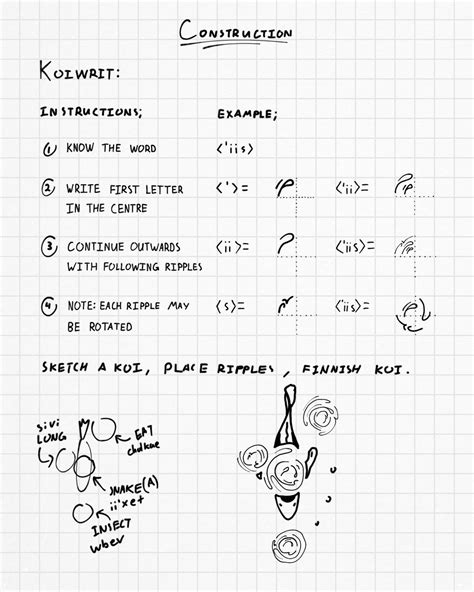 CONSTRUCTION
KOIWRIT:
INSTRUCTIONS; EXAMPLE;
1 KNOW THE WORD <'iis>
2 WRITE FIRST LETTER <'>= <'ii>=
IN THE CENTRE
3 CONTINUE OUTWARDS <ii>= <'iis>=
WITH FOLLOWING RIPPLES
4 NOTE: EACH RIPPLE MAY <s>= <'iis>=
BE ROTATED
SKETCH A KOI, PLACE RIPPLES, FINNISH KOI.
sivi
LONG
EAT
SNAKE(A)
ii'xet
INSECT
wbev